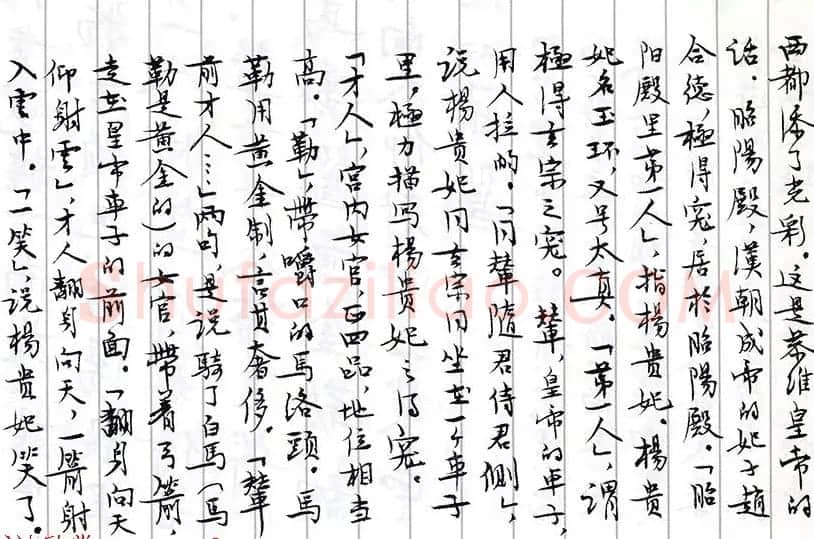 西都添了光彩。这是恭维皇帝的
话。昭陽殿,漢朝成帝的妃子趙
合德,極得宠,居於昭陽殿。「昭
阳殿里第一人」,指楊贵妃。楊貴
妃名玉环,又号太真。「第一人」,谓
極得玄宗之宠。輦,皇帝的車子,
用人拉的。「同輦隨君侍君側」,
说楊贵妃同玄宗同坐在一个車子
里,極力描写楊貴妃之得宠。
「才人」,宫内女官,正四品,地位相当
高。「勒」,帶嚼口的馬洛頭。馬
勒用黄金制,言其奢侈。「輦
前才人…」两句,是说騎了白馬(馬
勒是黄金的)的女官,帶着弓箭,
走在皇帝車子的前面。「翻身向天
仰射雲」,才人翻身向天,一箭射
入雲中。「一笑」,说楊貴妃笑了。
Shufaziliao.COM